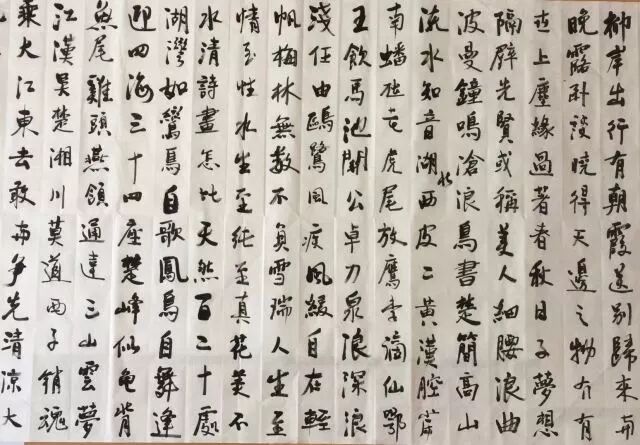 柳岸出行有朝霞送別歸來
晚露卧曉得天邊之物亦有
世上塵緣過著春秋日子夢想
隔壁先賢或稱美人細腰浪曲
波曼鐘鳴滄浪鳥書楚簡高山
流水知音湖西皮二黃漢腔
南蟠老虎尾放鷹李滴仙鄂
王飲馬池開公卓刀泉浪深浪
淺任由鷗鷺風疾風緩自在輕
帆梅林無數不負雪瑞人生至
情至性水生至純至真花美不
水清詩畫怎比天然百二十處
湖灣如鸞鳥自歌鳳鳥自舞逢
迎四海三十四座楚峰似龜背
魚尾雞頭燕頷通達三山雲夢
江漢吳楚湘川莫道西子銷魂
乘大江東去敢与爭先清涼大